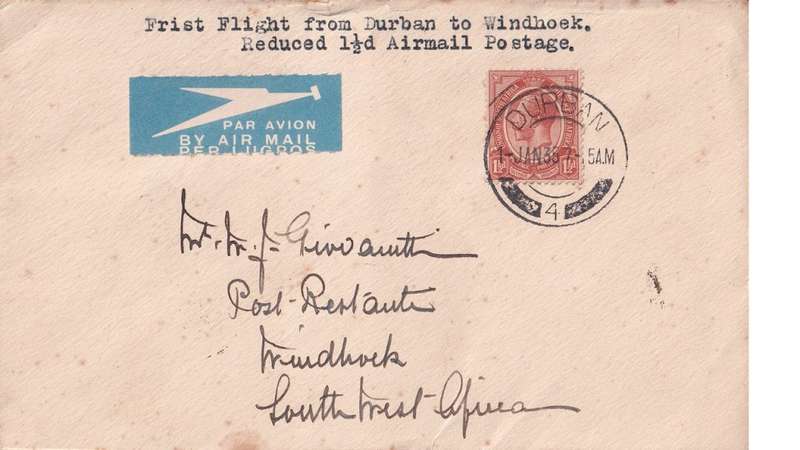 Frist Flight from Durban to Windhoek.
Reduced 1½d Airmail Postage.
PAR AVION
BY AIR MAIL
PER LUGPOS
DURBAN
1-JAN 35 7- 5 A.M
4
1½
Mr. M. J. Giovanetti
Post-Restante
Windhoek
South West Africa